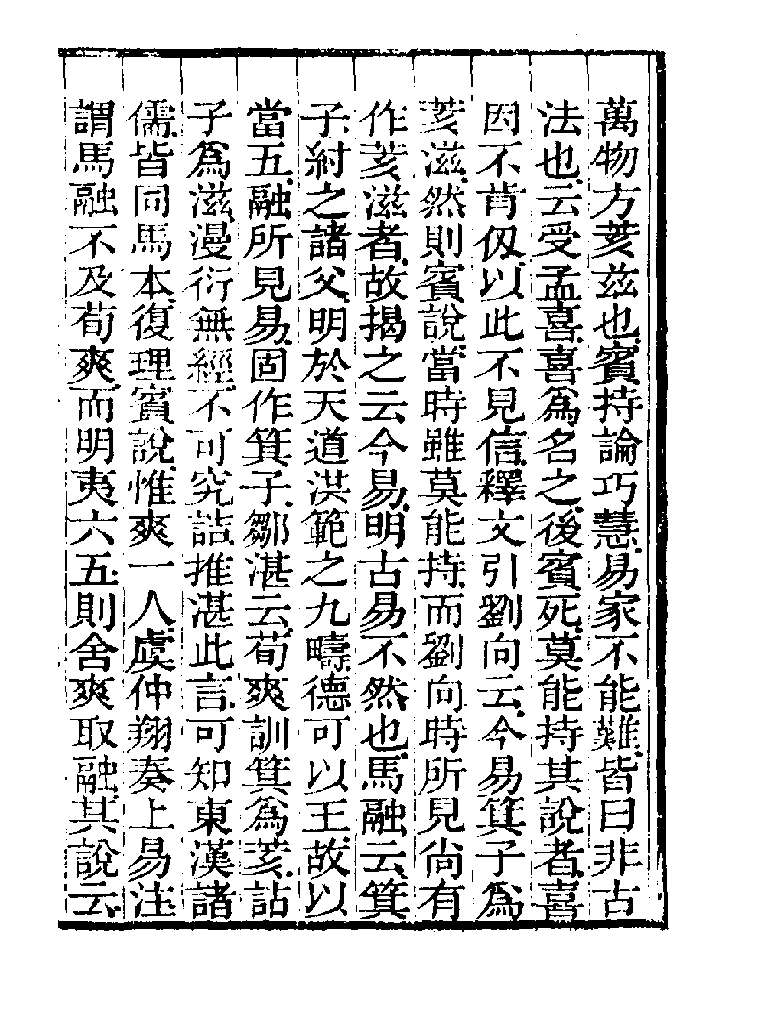 萬物方荄茲也賓持論巧慧易家不能難皆曰非古
法也云受孟喜喜爲名之後賓死莫能持其說者喜
因不肯仭以此不見信釋文引劉向云今易箕子爲
荄滋然則賓說當時雖莫能持而劉向時所見尚有
作荄滋者故揭之云今易明古易不然也馬融云箕
子紂之諸父明於天道洪範之九疇德可以王故以
當五融所見易固作箕子鄒湛云荀爽訓箕爲荄詁
子爲滋漫衍無經不可究詰推湛此言可知東漢諸
儒皆同馬本復理賓說惟爽一人虞仲翔奏上易注
謂馬融不及荀爽而明夷六五則舍爽取融其說云